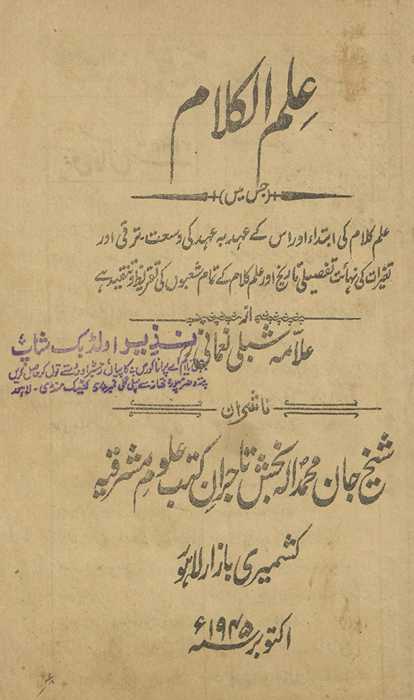 علم الکلام
(جس میں)
علم کلام کی ابتداء اور اس کے عہد بہ عہد کی وسعت۔ ترقی اور
تغیرات کی نہائت تفصیلی تاریخ اور علم کلام کے تمام شعبوں کی تقریظ و تنقید ہے
از
علامہ شبلی نعمانی
نذیر اولڈ بک شاپ
ناشران
شیخ جان محمد الہ بخش تاجران کتب علوم مشرقیہ
کشمیری بازار لاہور
اکتوبر ۱۹۴۵ء